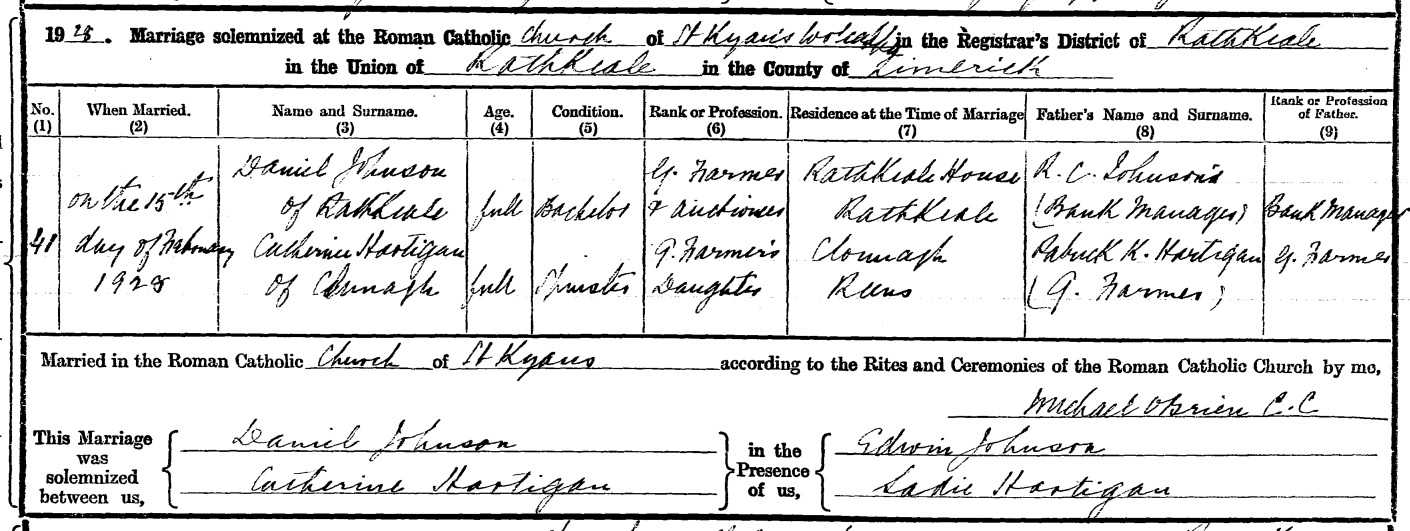 1928. Marriage solemnized at the Roman Catholic Church of St Kyran's in the Registrar's District of RathKeale
in the Union of RathKeale in the County of Limerick
No. (1) When Married. (2) Name and Surname. (3) Age. (4) Condition. (5) Rank or Profession. (6) Residence at the Time of Marriage (7) Father's Name and Surname. (8) Rank or Profession of Father. (9)
Daniel Johnson G. Farmer RathKeale House R. C. Johnson
on the 15th of RathKeale full Bachelor & Auctioneer RathKeale (Bank Manager) Bank Manager
41 day of February Catherine Hartigan G. Farmer's Clonnagh Patrick K. Hartigan G. Farmer
1928 of Clonnagh full Spinster Daughter Reens (G. Farmer)
Married in the Roman Catholic Church of St Kyrans according to the Rites and Ceremonies of the Roman Catholic Church by me,
Michael O'Brien C.C
This Marriage was solemnized between us,
Daniel Johnson
Catherine Hartigan
in the Presence of us,
Edwin Johnson
Sadie Hartigan